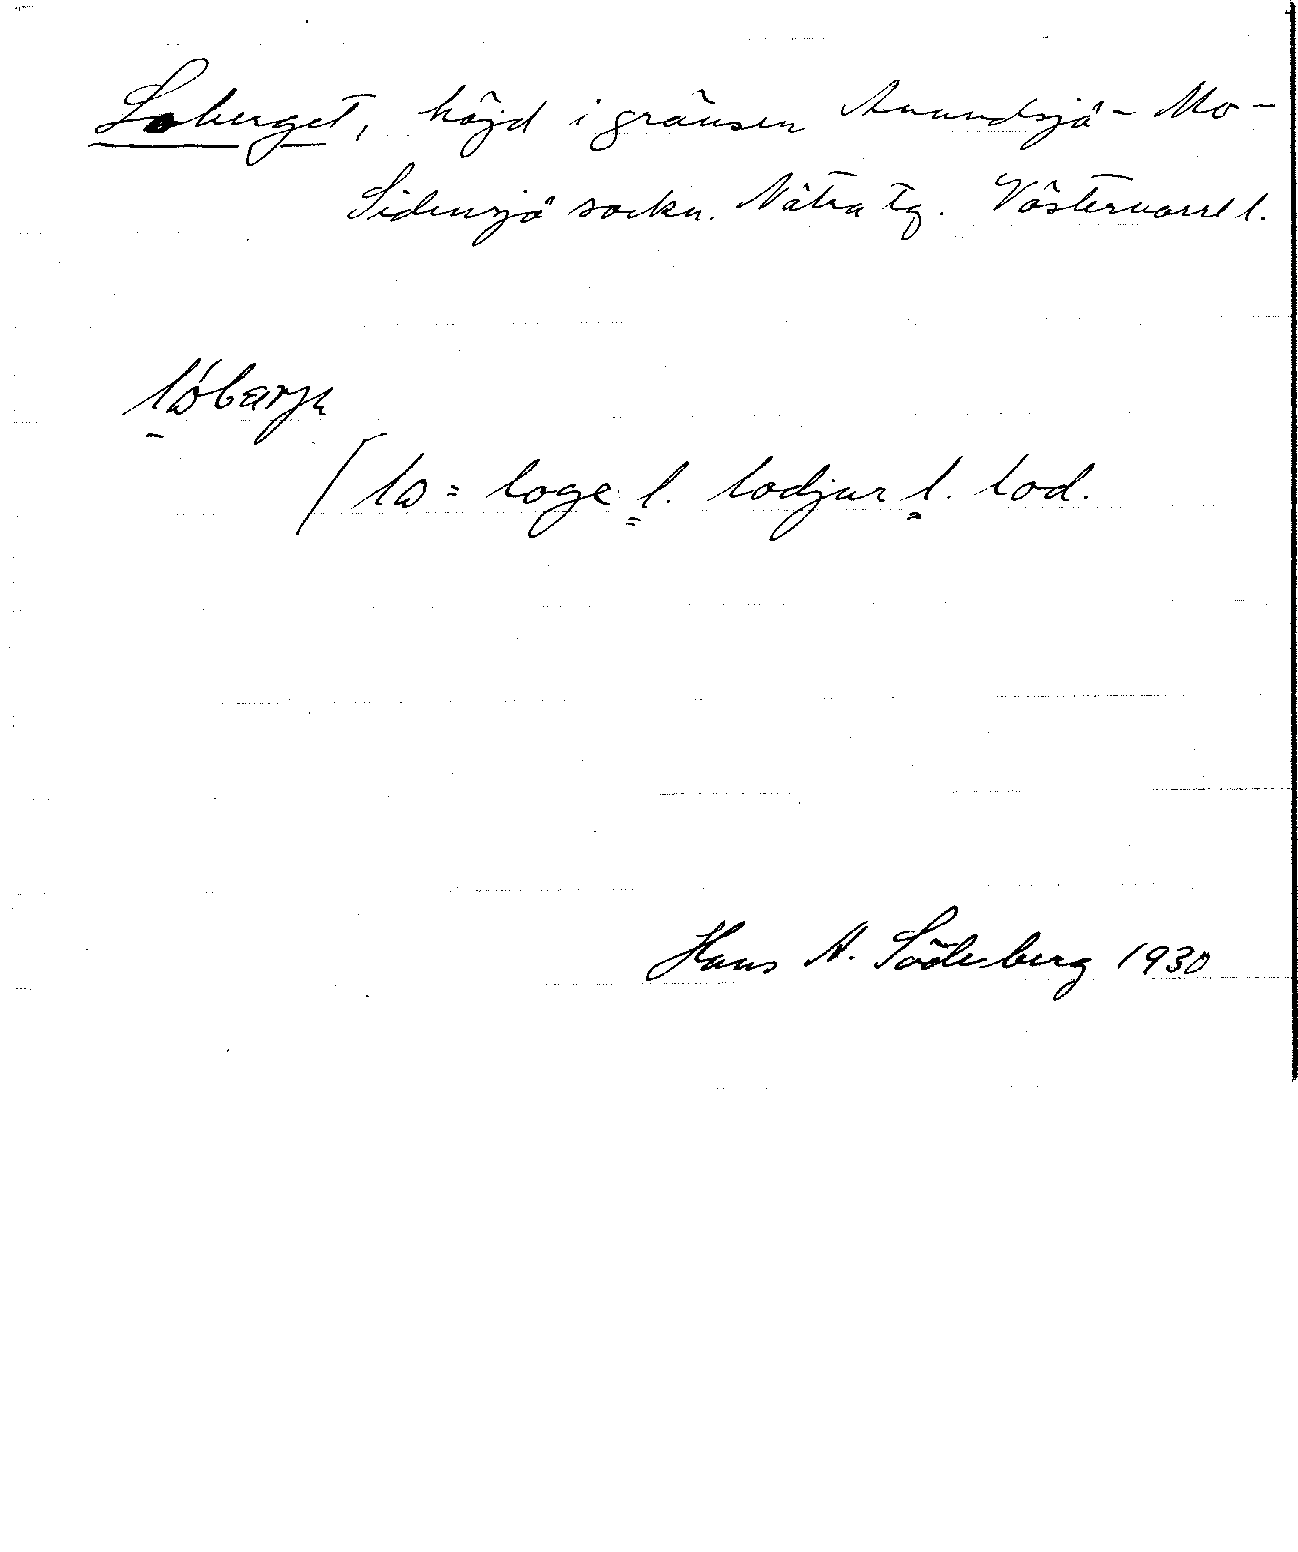 Loberget, höjd i gränsen Anundsjö - Mo -
Sidensjö sockn. Nätra tg. Västernorrl l.
lóbarjɩ
/ lɷ = loge l. lodjur l. lod.
Hans A. Söderberg 1930